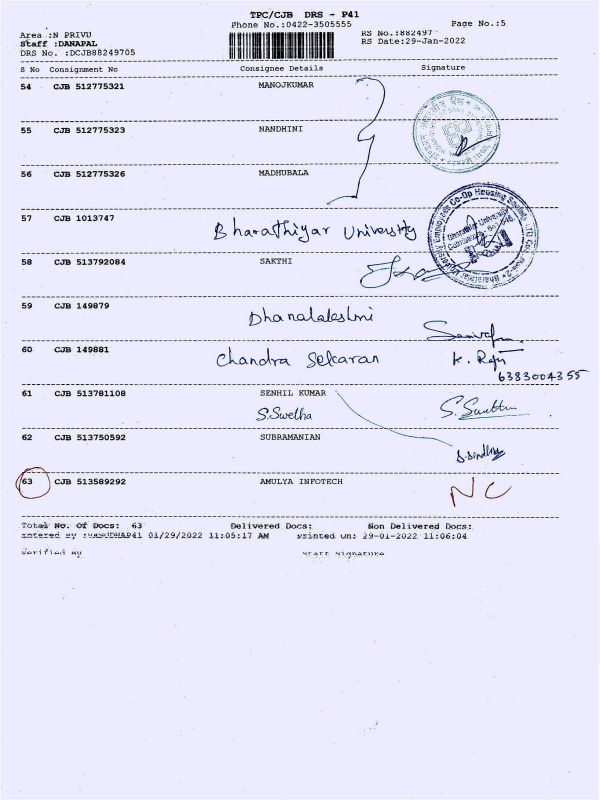 TPC/CJB DRS - P41
Phone No.:0422-3505555
Page No.:5
Area :N PRIVU
RS No.:882497
Staff :DANAPAL
RS Date:29-Jan-2022
DRS No. :DCJB88249705
S No Consignment No Consignee Details Signature
54 CJB 512775321 MANOJKUMAR
55 CJB 512775323 NANDHINI
56 CJB 512775326 MADHUBALA
57 CJB 1013747 Bharathiyar University
58 CJB 513792084 SAKTHI
59 CJB 149879 Dhanalakshmi
60 CJB 149881 Chandra Sekaran K. Raju
6383004355
61 CJB 513781108 SENHIL KUMAR
S. Swetha
62 CJB 513750592 SUBRAMANIAN
63 CJB 513589292 AMULYA INFOTECH NC
Total No. Of Docs: 63 Delivered Docs: Non Delivered Docs:
Entered By 01/29/2022 11:05:17 AM Printed On: 29-01-2022 11:06:04
Verified By Staff Signature